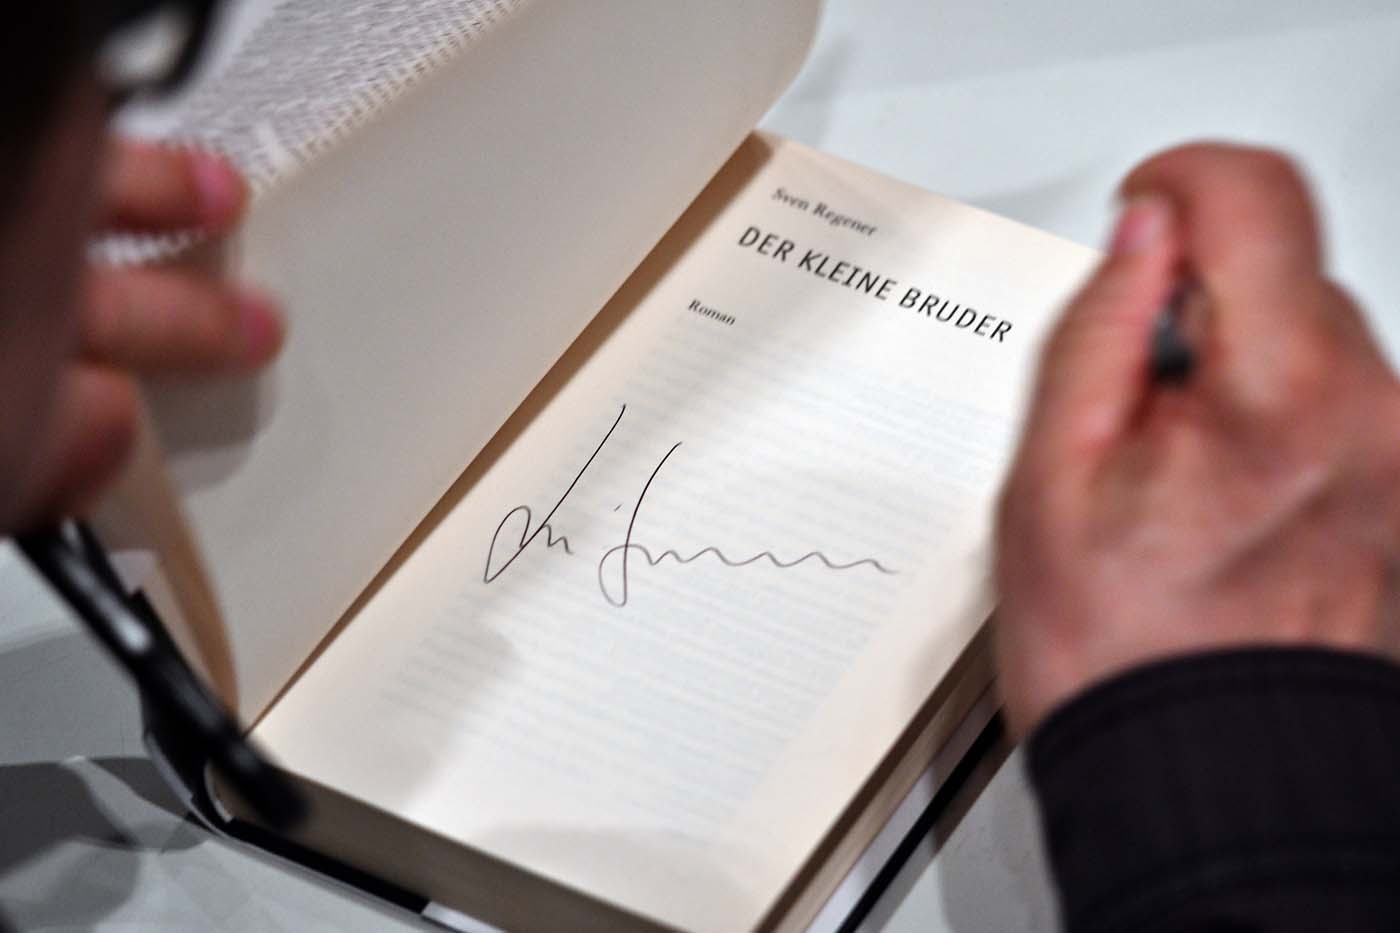 Sven Regener
DER KLEINE BRUDER
Roman